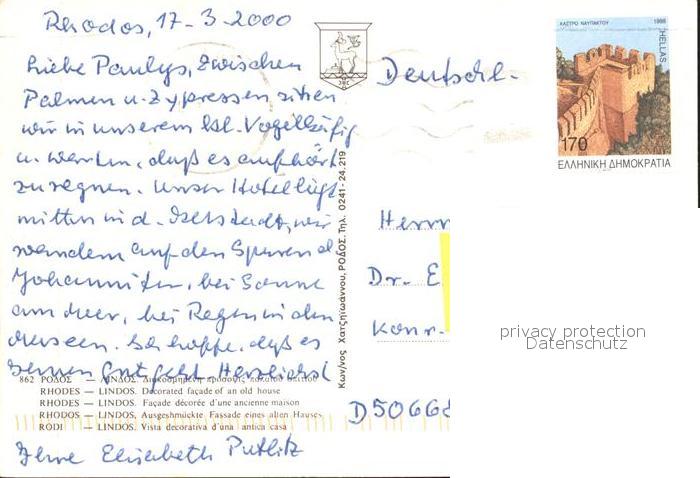 Rhodos, 17-3-2000
Liebe Paulys, zwischen
Palmen u. Zypressen sitzen
wir in unserem kl. Vogelkäfig
u. warten, daß es aufhört
zu regnen. Unser Hotel liegt
mitten in d. Altstadt, wir
wandern auf den Spuren d.
Johanniter, bei Sonne
am Meer, bei Regen in den
Museen. Ich hoffe, daß es
Ihnen gut geht. Herzlichst
Ihre Elisabeth Putlitz
862 ΡΟΔΟΣ — ΛΙΝΔΟΣ. Διακοσμημένη πρόσοψις παλαιού σπιτιού
RHODES — LINDOS. Decorated façade of an old house
RHODES — LINDOS. Façade décorée d'une ancienne maison
RHODOS — LINDOS, Ausgeschmückte Fassade eines alten Hauses
RODI — LINDOS. Vista decorativa d'una antica casa
Κων/νος Χατζηϊωάννου, ΡΟΔΟΣ. Τηλ. 0241-24.219
Deutschl.
Herrn
Dr. E.
Konr.
D 50668
ΚΑΣΤΡΟ ΝΑΥΠΑΚΤΟΥ 1998
HELLAS
170
ΕΛΛΗΝΙΚΗ ΔΗΜΟΚΡΑΤΙΑ
privacy protection
Datenschutz